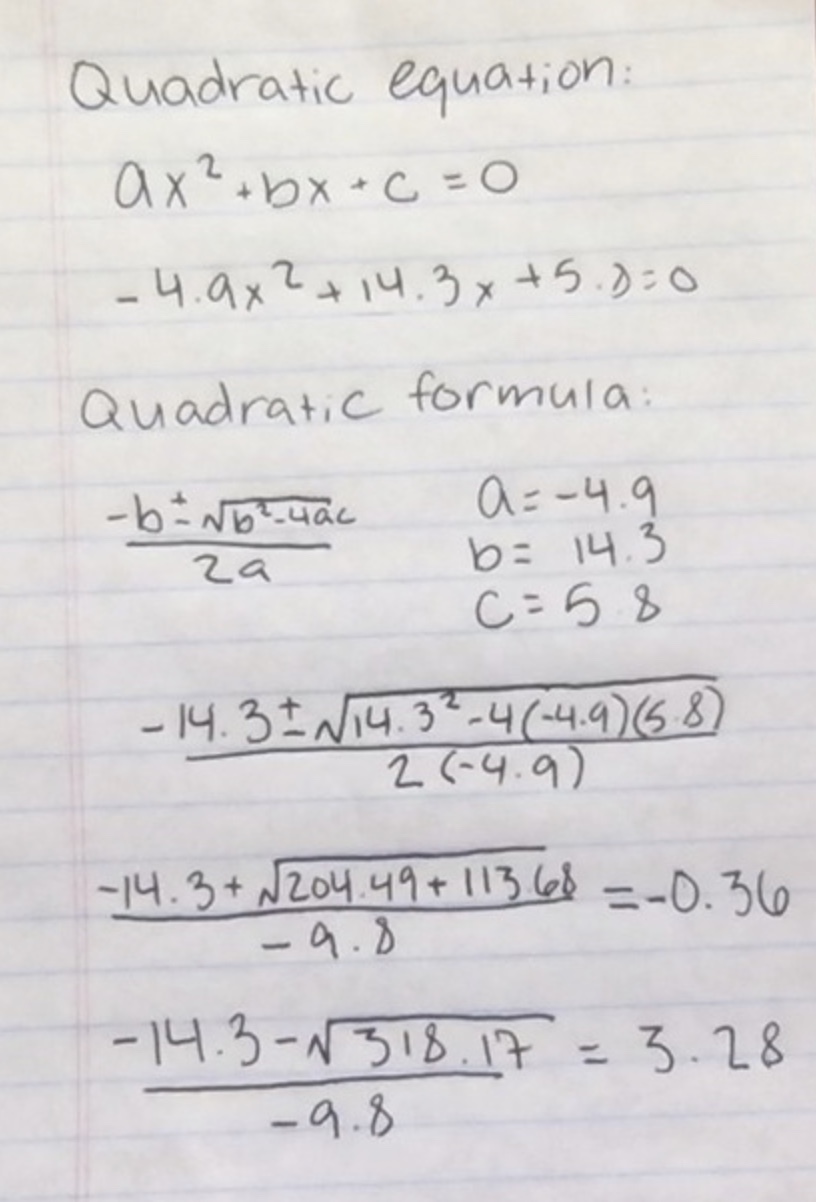 Quadratic equation:
ax² + bx + c = 0
-4.9x² + 14.3x + 5.8 = 0
Quadratic formula:
-b ± √b²-4ac / 2a
a = -4.9
b = 14.3
c = 5 8
-14.3 ± √14.3² - 4(-4.9)(5.8) / 2(-4.9)
-14.3 + √204.49 + 113.68 / -9.8 = -0.36
-14.3 - √318.17 / -9.8 = 3.28